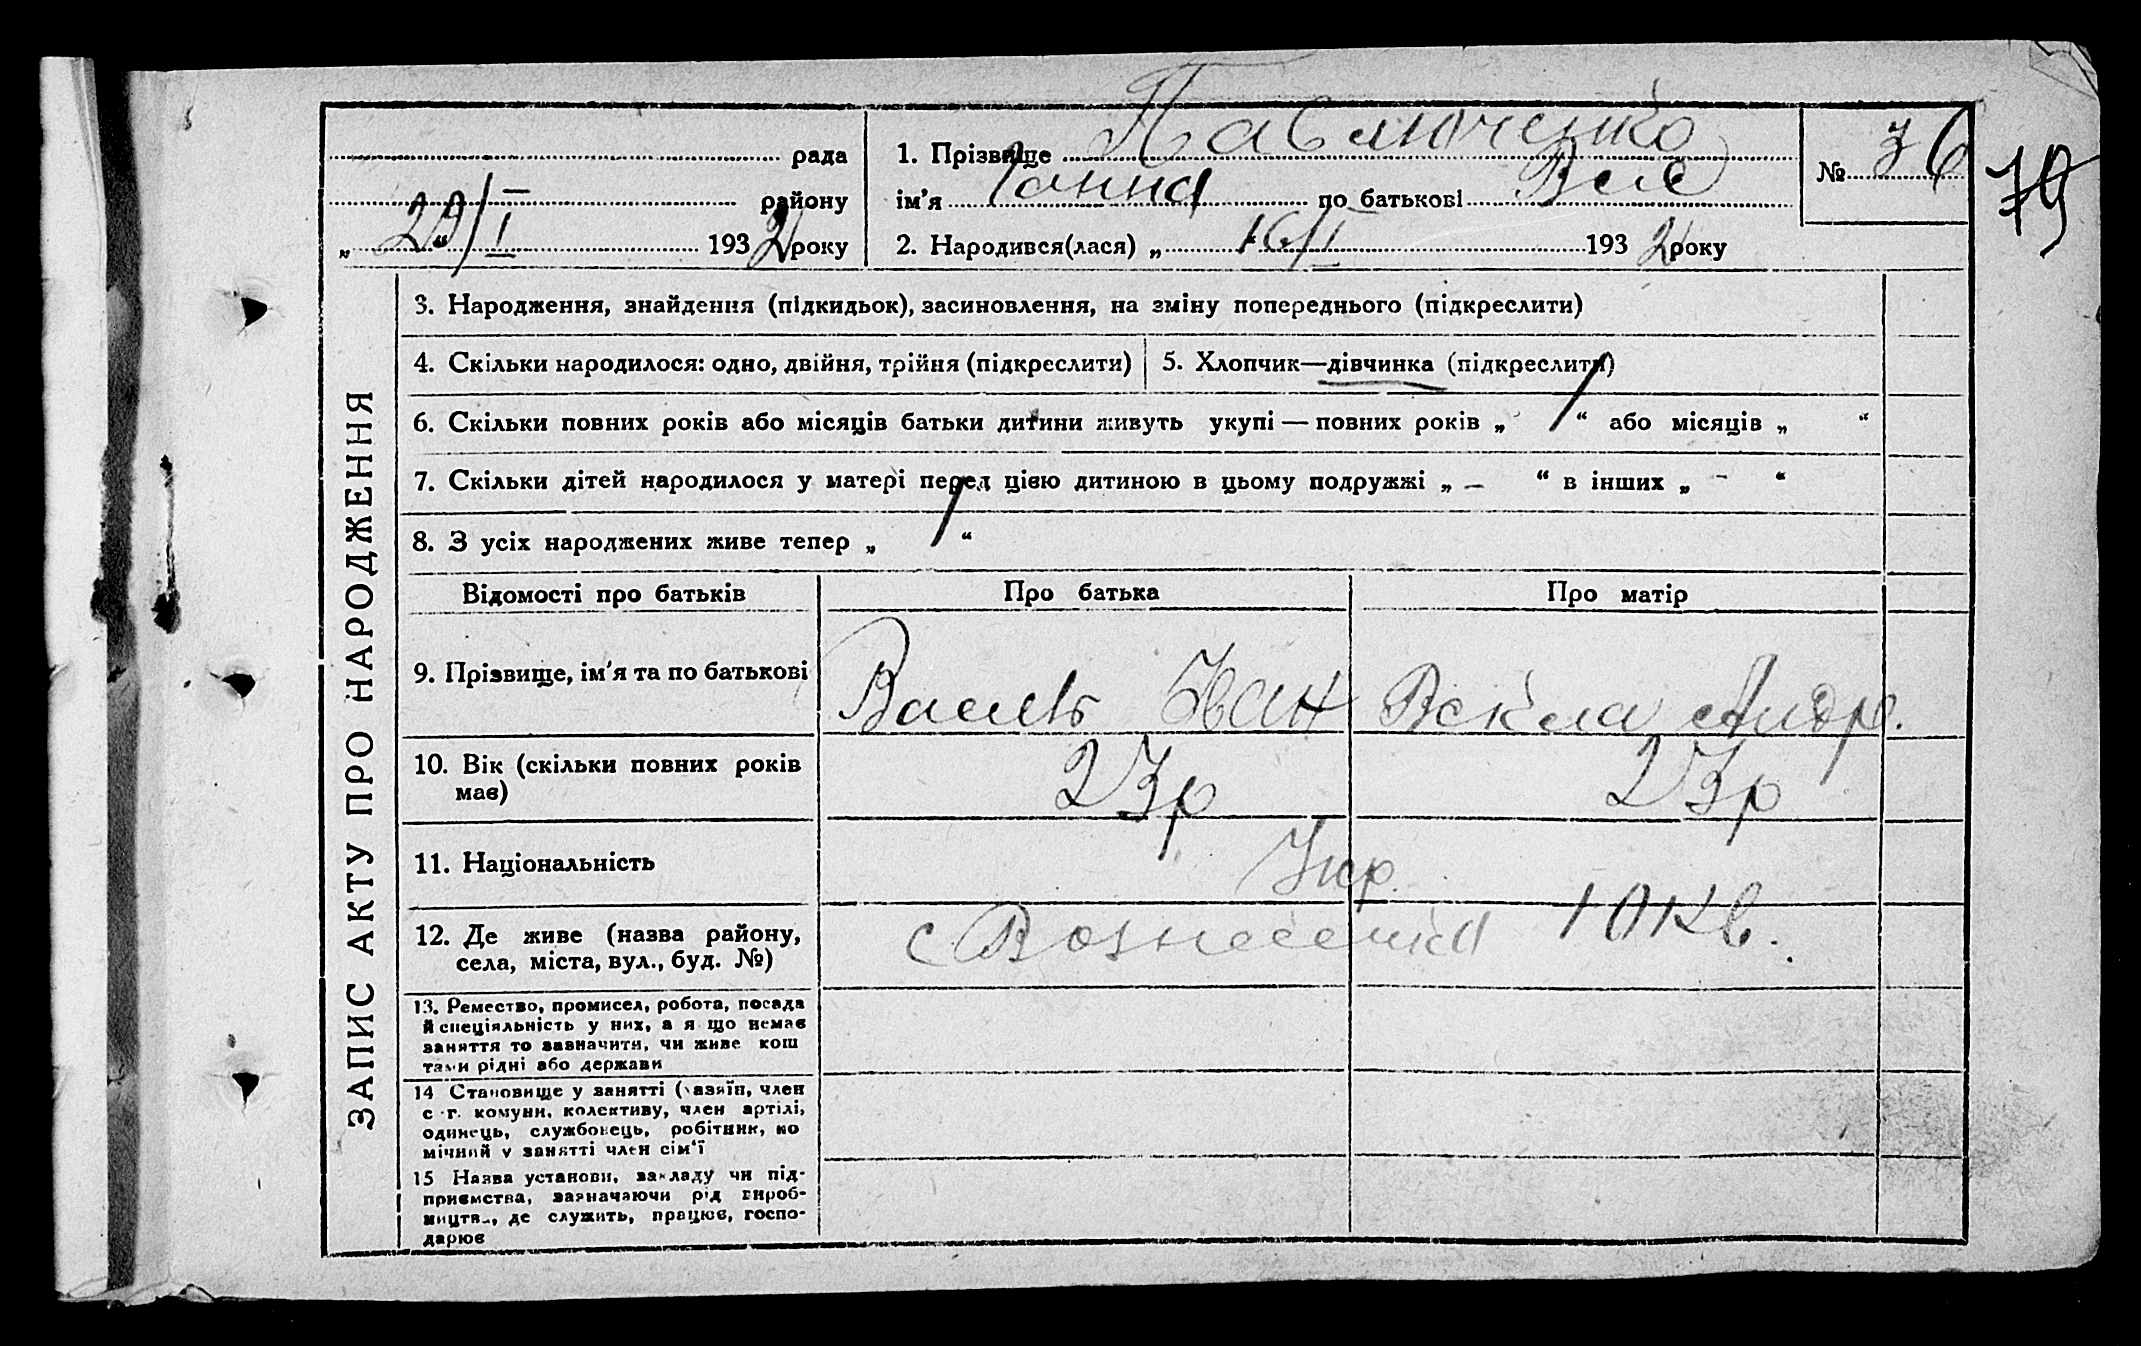 Павлюченко
рада
1. Прізвище
№ 36
79
району
ім'я Ганна по батькові Вас
„ 29/I 1932 року
2. Народився(лася) „ 16/I 1932 року
ЗАПИС АКТУ ПРО НАРОДЖЕННЯ
3. Народження, знайдення (підкидьок), засиновлення, на зміну попереднього (підкреслити)
4. Скільки народилося: одно, двійня, трійня (підкреслити)
5. Хлопчик—дівчинка (підкреслити)
6. Скільки повних років або місяців батьки дитини живуть укупі — повних років „ 1 “ або місяців „ “
7. Скільки дітей народилося у матері перед цією дитиною в цьому подружжі „ – “ в інших „ – “
8. З усіх народжених живе тепер „ 1 “
Відомості про батьків
Про батька
Про матір
9. Прізвище, ім'я та по батькові
Василь Іван
Векла Андр.
10. Вік (скільки повних років
має)
23р
23р
11. Національність
Укр.
12. Де живе (назва району,
села, міста, вул., буд. №)
с Вознесенка 10 кв.
13. Ремество, промисел, робота, посада
й спеціяльність у них, а я що немає
заняття то зазначити, чи живе кош
тами рідні або держави
14 Становище у занятті (хазяїн, член
с.-г. комуни, колективу, член артілі,
одинець, службовець, робітник, по
мічний у занятті член сім'ї
15 Назва установи, закладу чи під-
приємства, зазначаючи рід вироб-
ництва, де служить, працює, госпо-
дарює